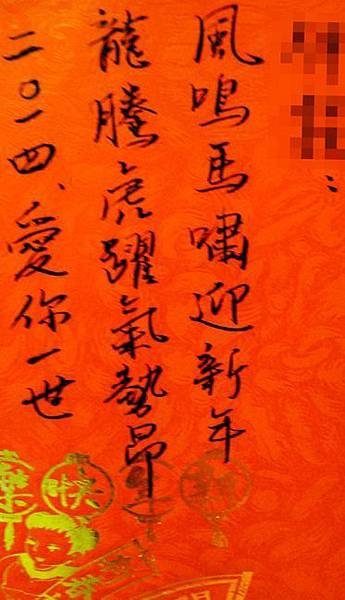 ：
風鳴馬嘯迎新年
龍騰虎躍氣勢昂
二〇一四、愛你一世
新年快樂